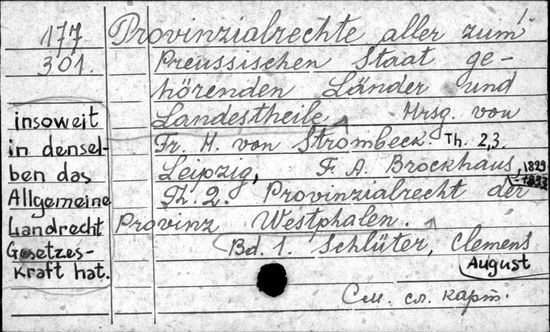 177
301.
Provinzialrechte aller zum
Preussischen Staat ge-
hörenden Länder und
Landestheile Hrsg. von
insoweit
in densel-
ben das
Allgemeine
Landrecht
Gesetzes-
kraft hat.
Fr. H. von Strombeck. Th. 2,3.
Leipzig, F. A. Brockhaus, 1829
-1833
Th. 2. Provinzialrecht der
Provinz Westphalen.
Bd. 1. Schlüter, Clemens
August
См. сл. карт.